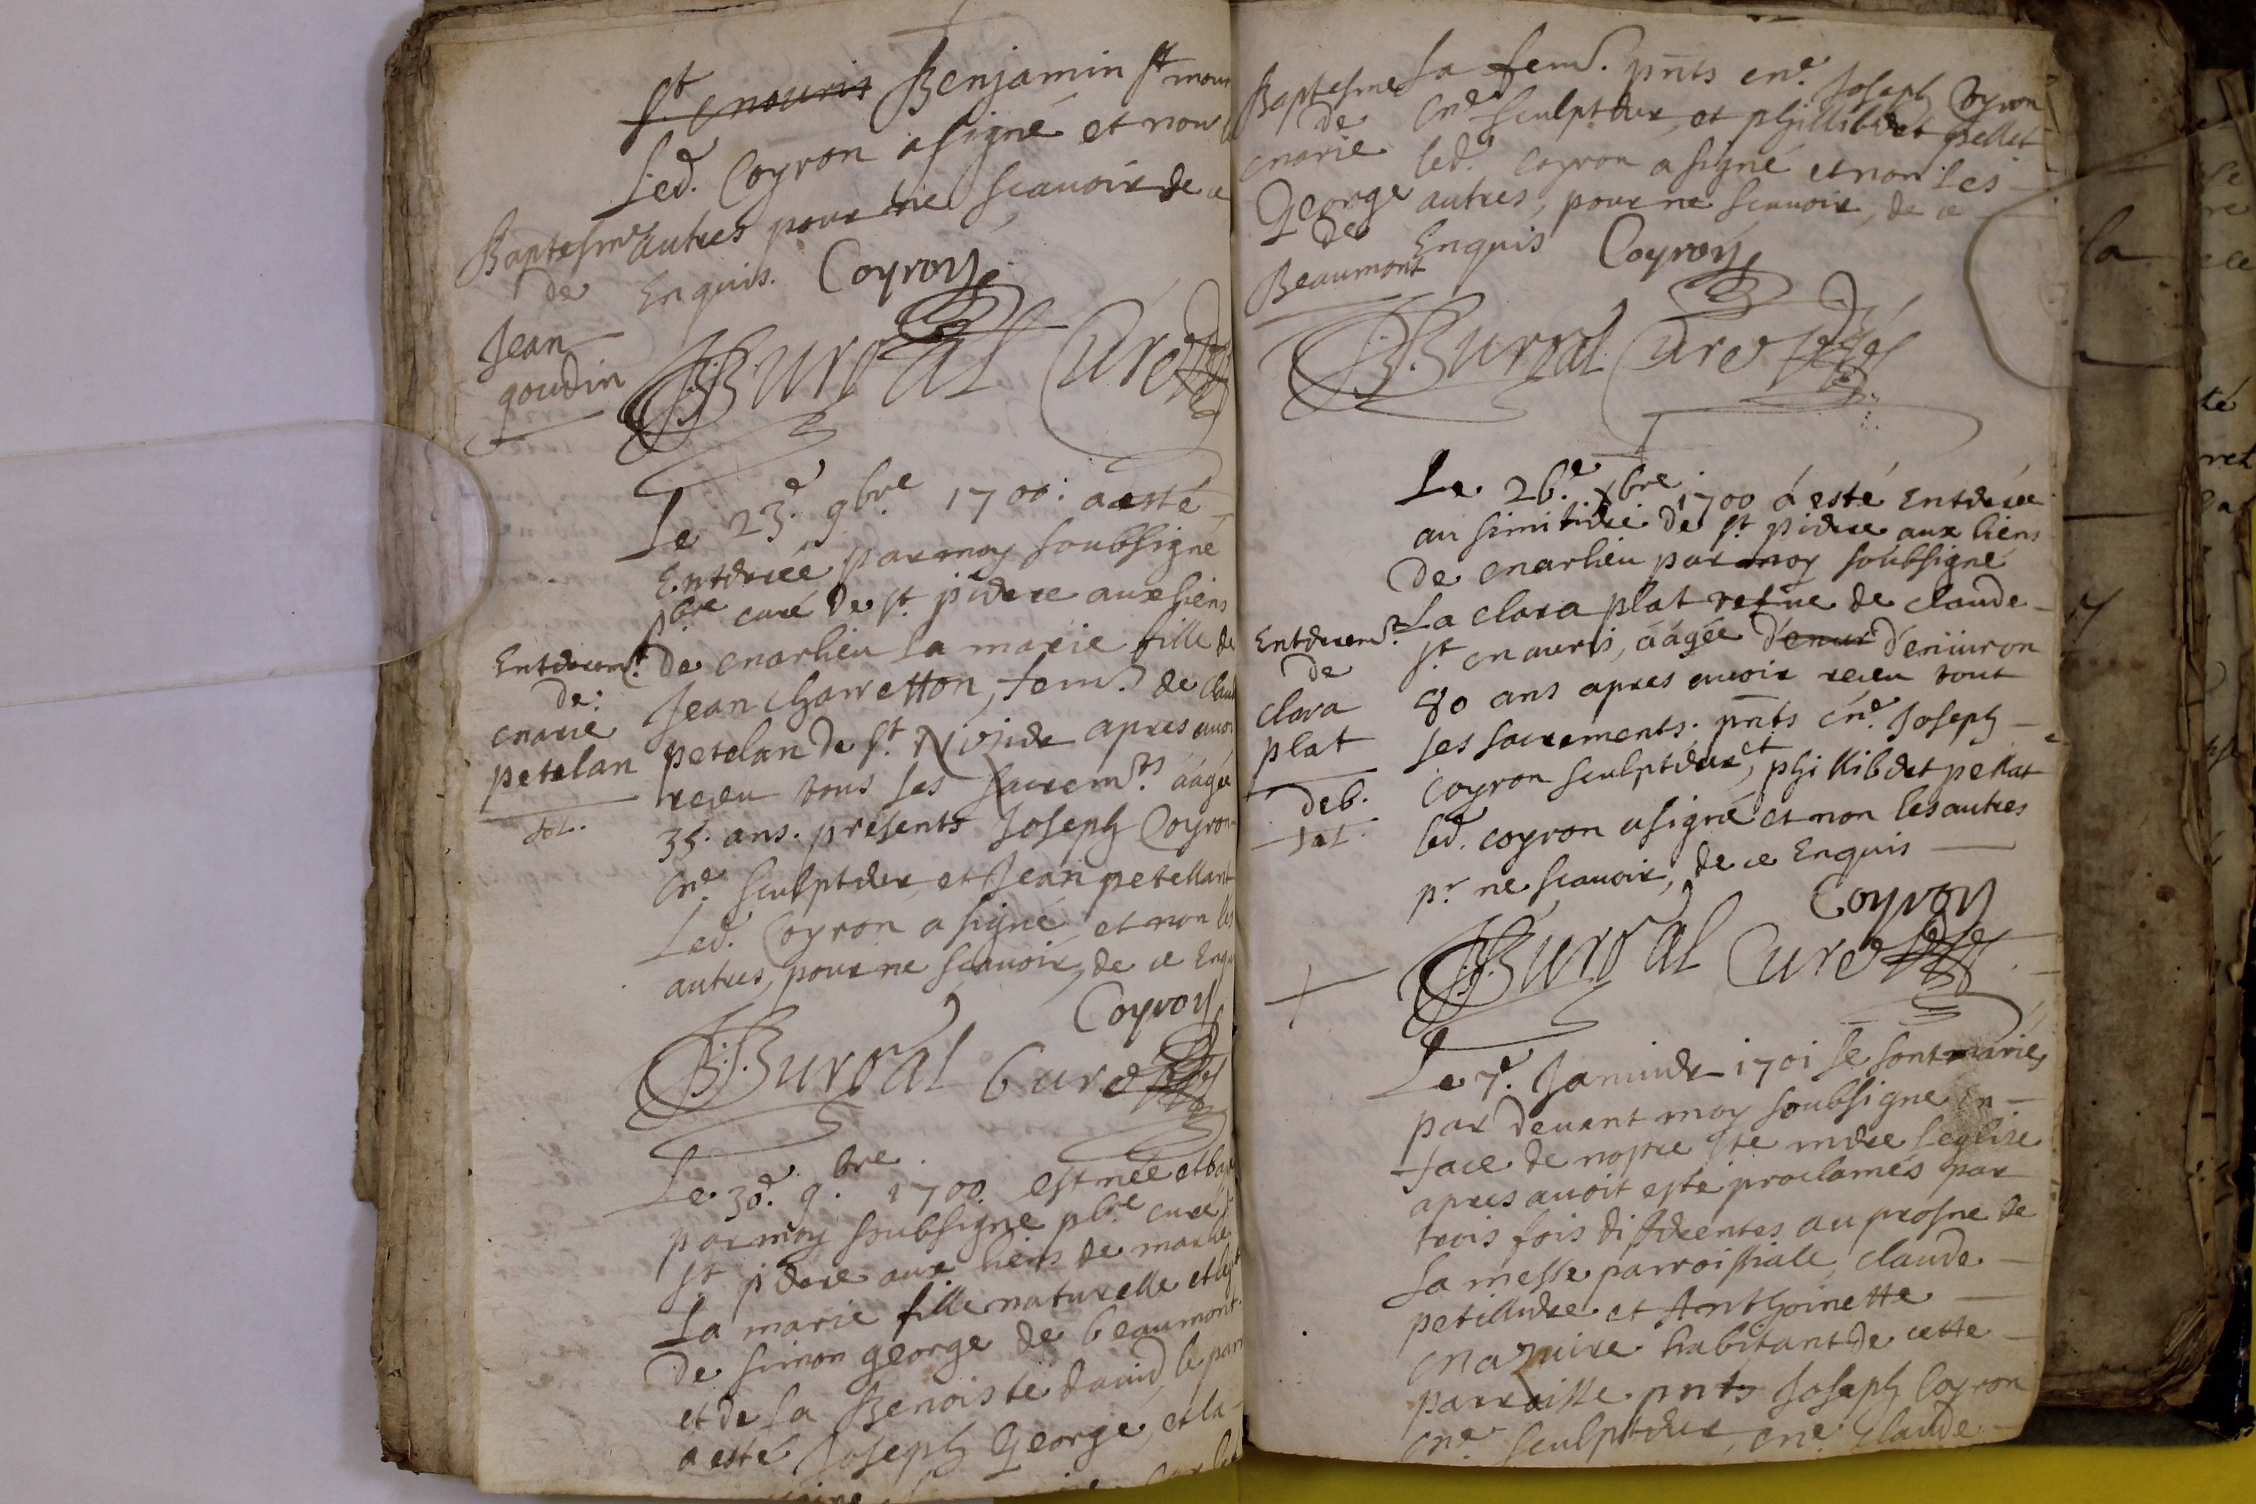 St mauris Benjamin St maur
Led. Coyron a signé et non l
autres pour ne scauoir de ce
Enquis. Coyron
Baptesme
de
Jean
goudin
JB Buroal Curé
Le 23e. 9bre. 1700. a esté
Enterrée par moy soubsigné
pbre curé de St. pierre aux liens
de marlieu la marie fille de
Jean charretton, fem. de Claud
petelan de St. Nizier apres auoi
receu tous ses sacremts. aagée
35. ans. présents Joseph Coyron
me. sculpteur, et Jean petellant
Led. Coyron a signé et non les
autres, pour ne scauoir, de ce Enq
Coyron
Enterremt.
de:
marie
petelan
JB Buroal Curé
Le 30e. 9bre. 1700. est née et bap
par moy soubsigné pbre curé
St pierre aux liens de marlie
La marie fille naturelle et legt
de simon george de beaumont.
et de la Benoiste dauid, le parr
a esté Joseph George, et la
Baptesme
de
marie
George
de
Beaumont
la fem. pnts me. Joseph Coyron
me sculpteur, et phillibert pellet
led. Coyron a signé et non les
autres, pour ne scauoir, de ce
Enquis Coyron
JB Buroal Curé
Le 26e. xbre 1700 a esté Enterrée
au simitiere de St pierre aux liens
de marlieu par moy soubsigné
La clara plat vefue de claude
St mauris, aagée d'enuir d'enuiron
80 ans apres auoir receu tout
ses sacrements. pnts me. Joseph
Coyron sculpteur, et phillibert pellat
led. coyron a signé et non les autres
pr. ne scauoir, de ce Enquis
Coyron
Enterremt
de
clara
plat
deb.
JB Buroal Curé
Le 7e. Januier 1701 se sont mariés
par deuant moy soubsigné en
face de nostre ste mere l'eglise
apres auoit esté proclamés par
trois fois differentes au prosne de
la messe parroissiale, claude
petilludre et Anthoinette
mazuire habitant de cette
parroisse pnts Joseph Coyron
me. sculpteur, me. Claude
la